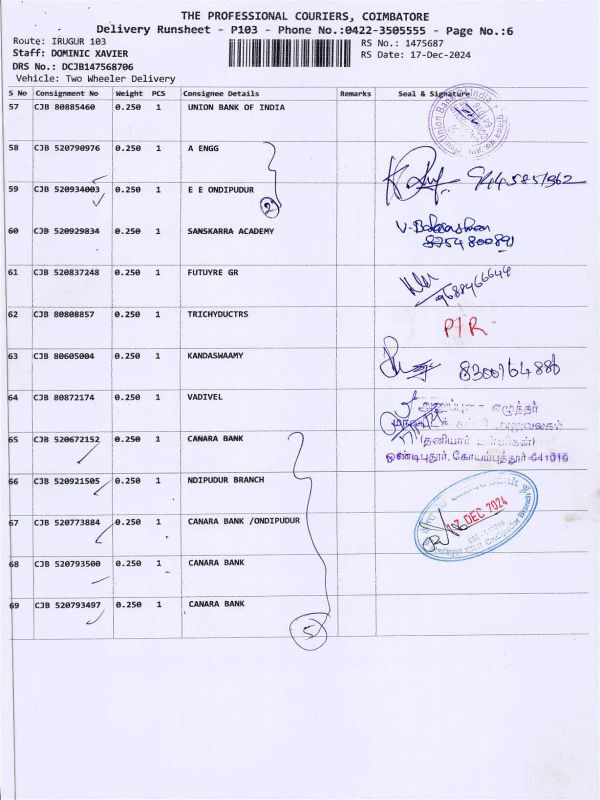 THE PROFESSIONAL COURIERS, COIMBATORE
Delivery Runsheet - P103 - Phone No.:0422-3505555 - Page No.:6
Route: IRUGUR 103
RS No.: 1475687
Staff: DOMINIC XAVIER
RS Date: 17-Dec-2024
DRS No.: DCJB147568706
Vehicle: Two Wheeler Delivery
S No Consignment No Weight PCS Consignee Details Remarks Seal & Signature
57 CJB 80885460 0.250 1 UNION BANK OF INDIA
58 CJB 520790976 0.250 1 A ENGG
59 CJB 520934003 0.250 1 E E ONDIPUDUR
2
60 CJB 520929834 0.250 1 SANSKARRA ACADEMY
61 CJB 520837248 0.250 1 FUTUYRE GR
9688466644
62 CJB 80808857 0.250 1 TRICHYDUCTRS
P/R
63 CJB 80605004 0.250 1 KANDASWAAMY
64 CJB 80872174 0.250 1 VADIVEL
எழுத்தர்
அலுவலகம்
(தனியார்
65 CJB 520672152 0.250 1 CANARA BANK
ஒண்டிபுதூர், கோயம்புத்தூர்-641016
66 CJB 520921505 0.250 1 NDIPUDUR BRANCH
67 CJB 520773884 0.250 1 CANARA BANK /ONDIPUDUR
17 DEC 2024
68 CJB 520793500 0.250 1 CANARA BANK
69 CJB 520793497 0.250 1 CANARA BANK
5